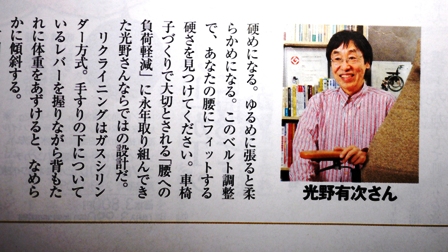 硬めになる。ゆるめに張ると柔
らかめになる。このベルト調整
で、あなたの腰にフィットする
硬さを見つけてください。車椅
子づくりで大切とされる「腰への
負荷軽減」に永年取り組んでき
た光野さんならではの設計だ。
リクライニングはガスシリン
ダー方式。手すりの下について
いるレバーを握りながら背もた
れに体重をあずけると、なめら
かに傾斜する。
光野有次さん